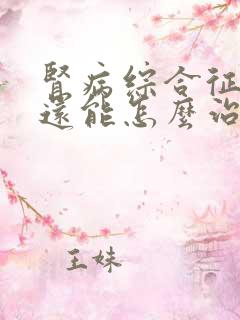 腎病綜合征
還能怎麼治
王妹